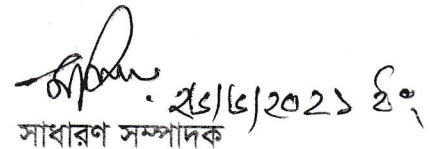 ২৬/৬/২০২১ ইং
সাধারণ সম্পাদক